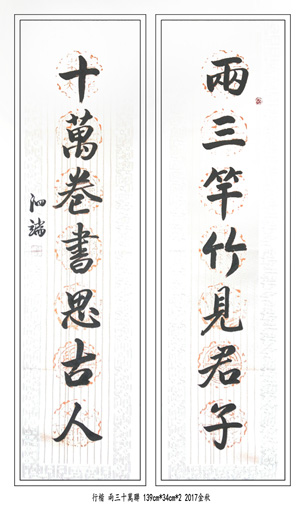 兩三竿竹見君子
十萬卷書思古人
泗端
行楷 兩三十萬聯 139cm*34cm*2 2017金秋